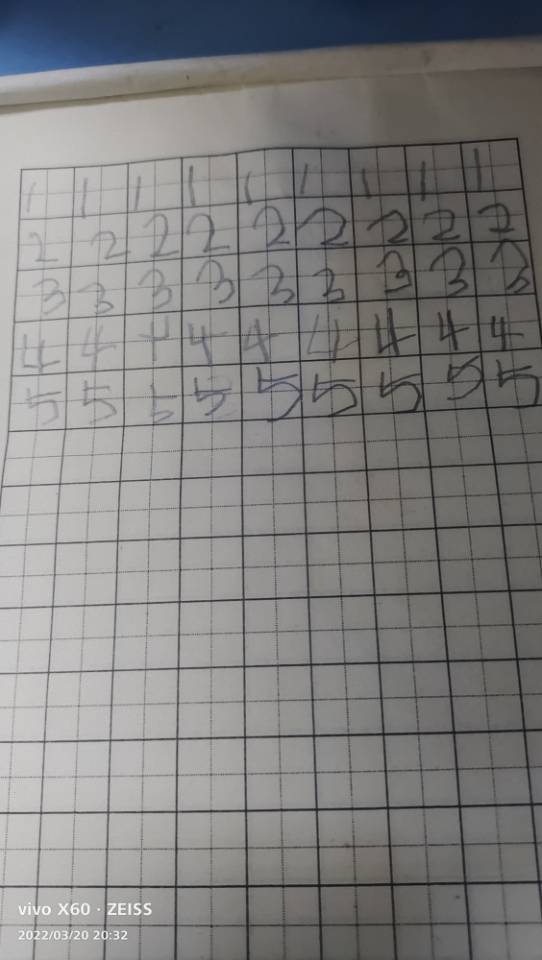 1 1 1 1 1 1 1 1 1
2 2 2 2 2 2 2 2 2
3 3 3 3 3 3 3 3 3
4 4 4 4 4 4 4 4 4
5 5 5 5 5 5 5 5 5
vivo X60 · ZEISS
2022/03/20 20:32